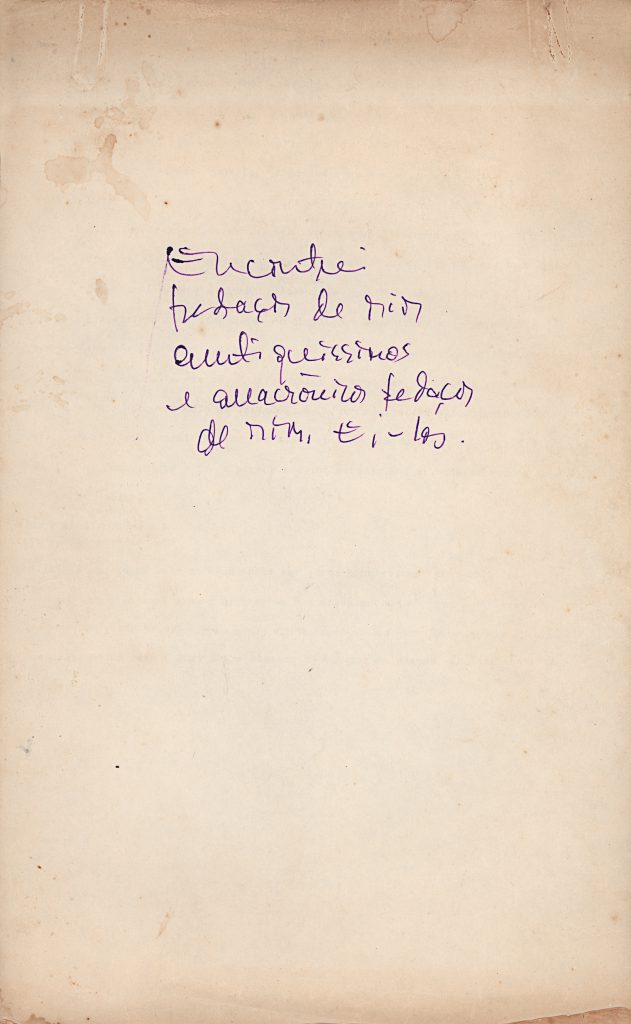 Encontrei
pedaços de mim
antiquissimos
e anacrônicos pedaços
de mim. Ei-los.